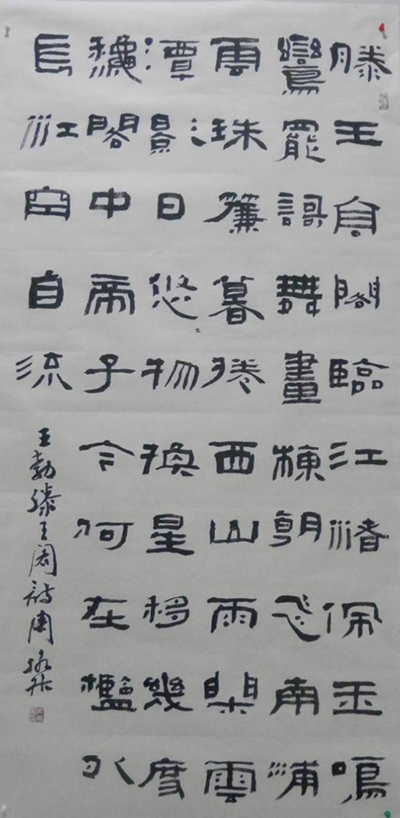 滕王高閣臨江渚佩玉鳴
鸞罷謌舞畫棟朝飛南浦
雲珠簾暮捲西山雨閑雲
潭影日悠々物換星移幾度
穐閣中帝子今何在檻外
長江空自流
王勃滕王阁詩周